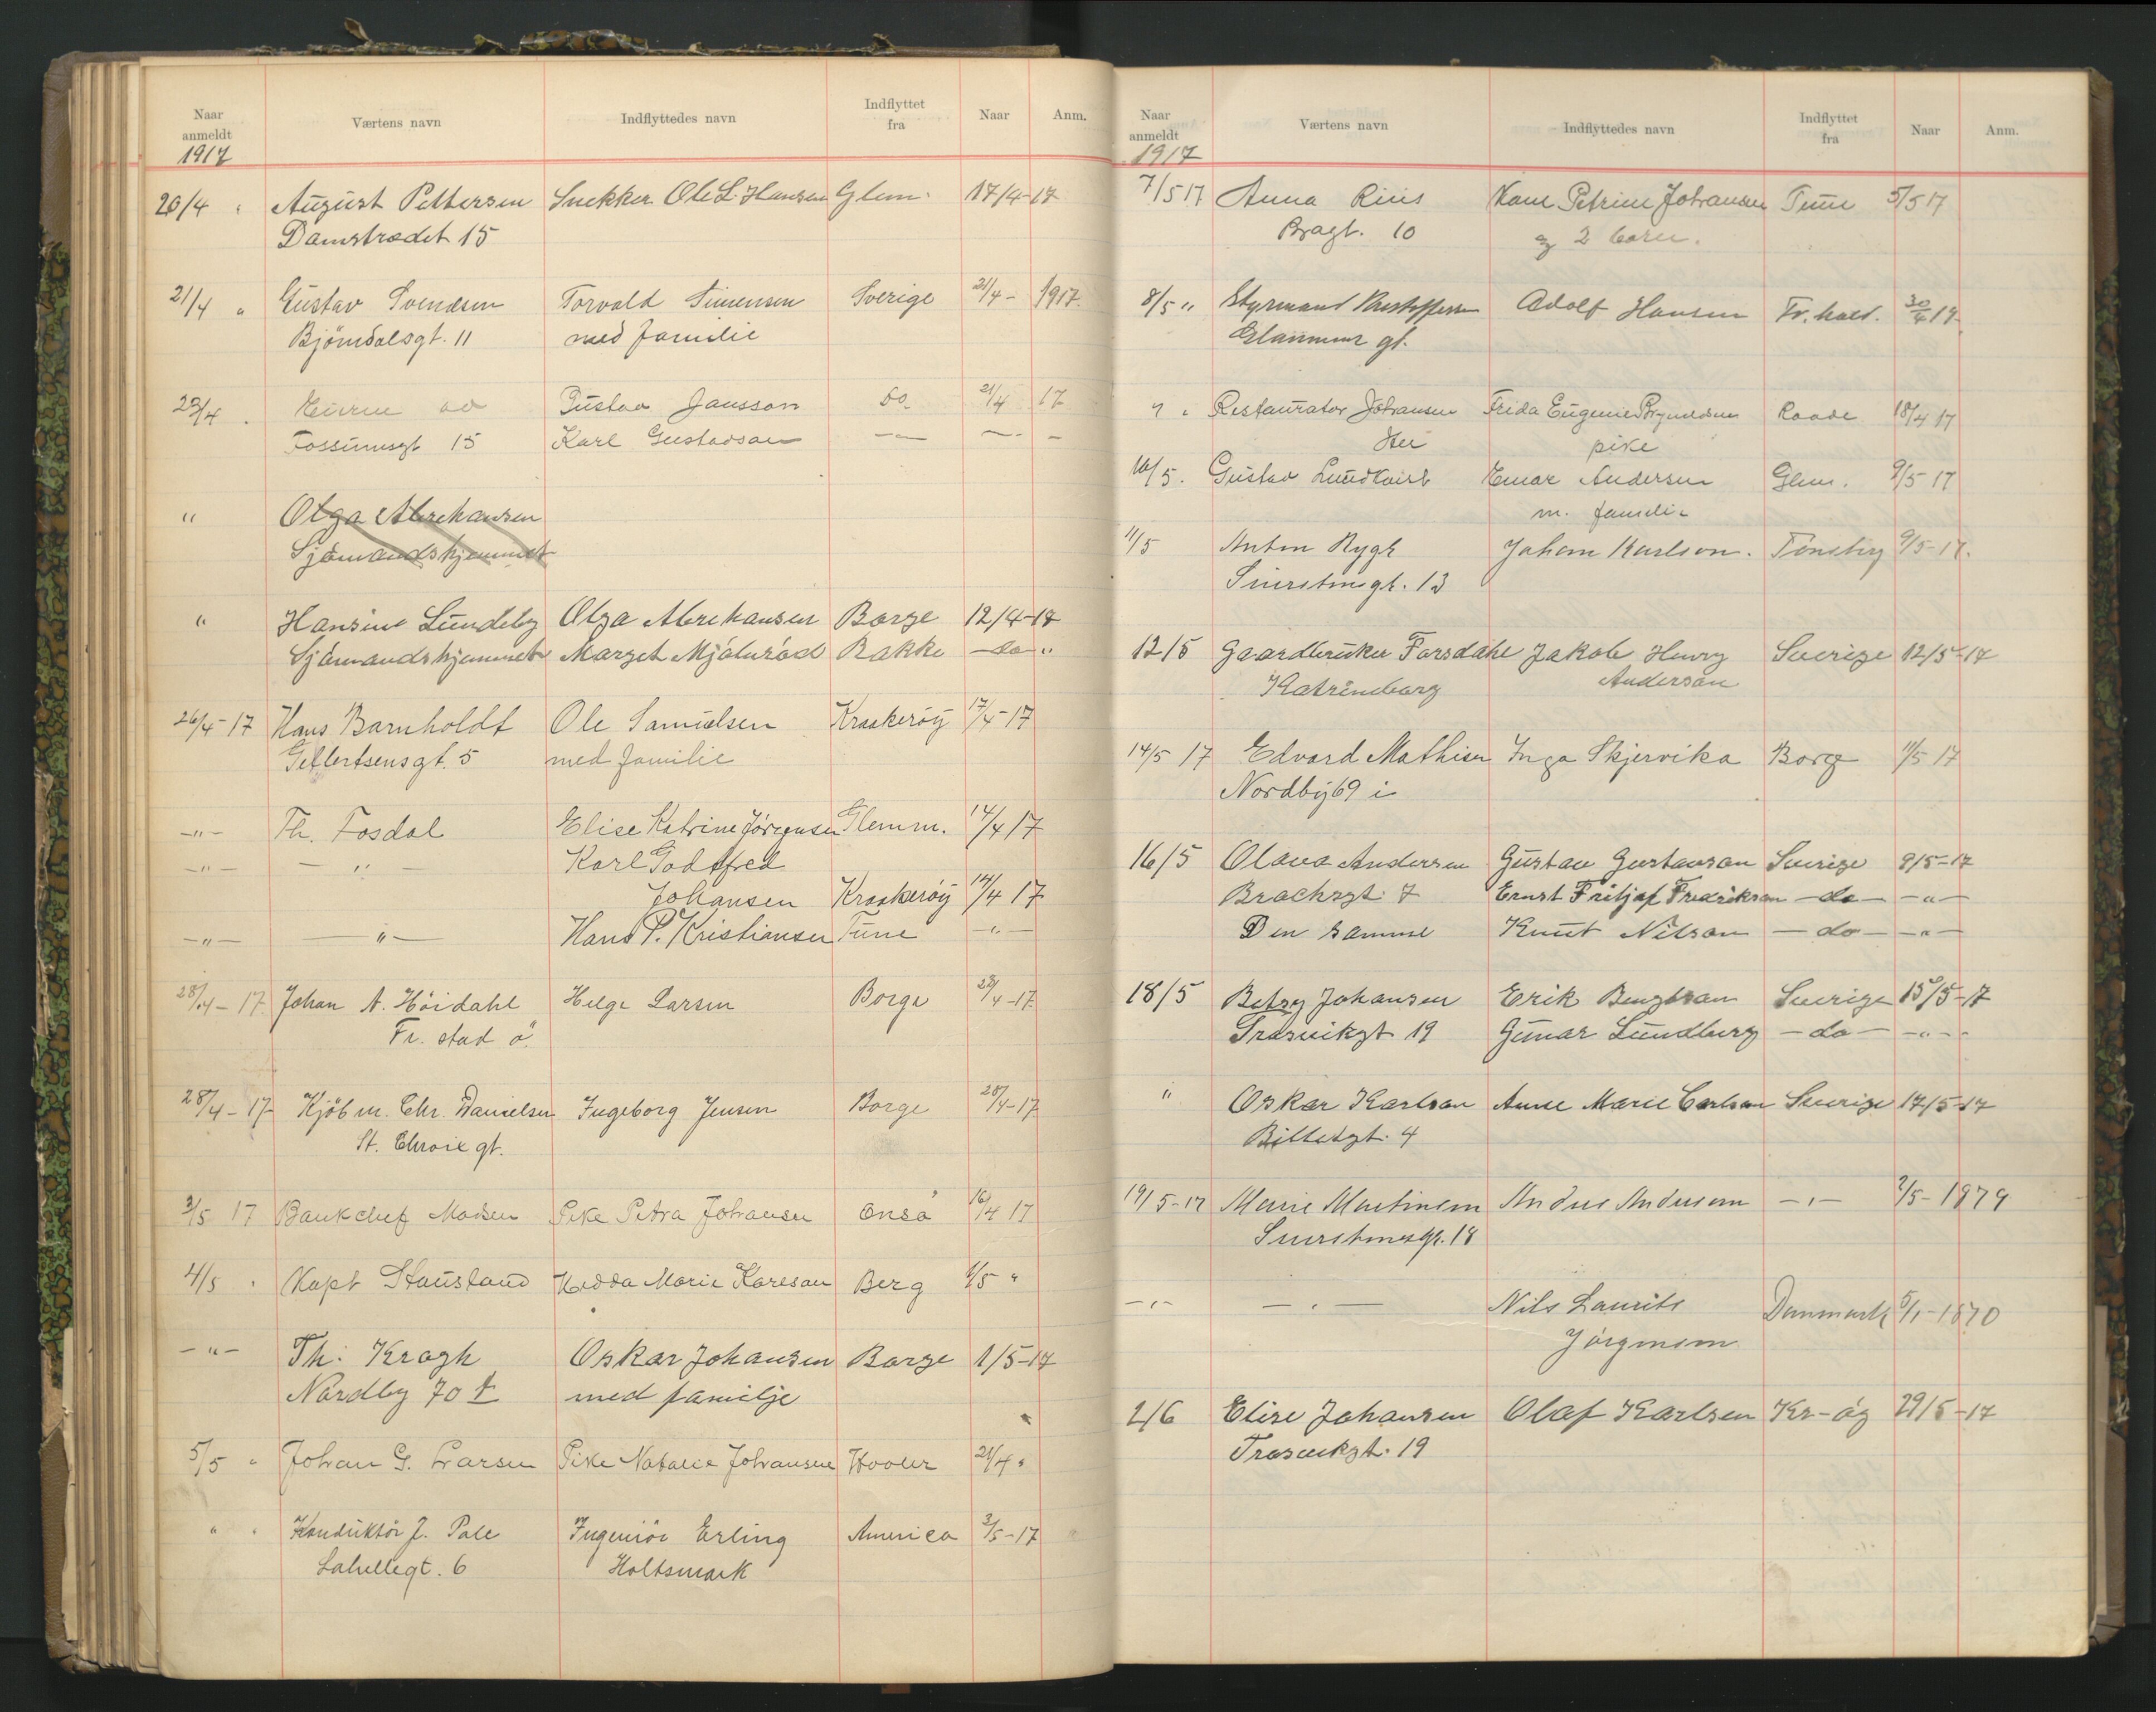 Naar anmeldt Værtens navn Indflyttedes navn Indflyttet fra Naar Anm.
1917
20/4 " August Pettersen Snekker Ole L. Hansen Glem. 17/4-17
Damstrædet 15
21/4 " Gustav Svendsen Torvald Simensen Sverige 21/4 - 1917.
Bjørndalsgt. 11 med familie
23/4 . Gustav Jansson do. 21/4 17
Fossumsgt 15 Karl Gustavson -"- -"- -
" Olga Abrehansen
Sjømandshjemmet
" Hansine Lundeby Olga Abrehansen Borge 12/4-17
Sjømandshjemmet Marget Mjølnrød Bakke -do- "
26/4-17 Hans Barnholdt Ole Samuelsen Kraakerøy 17/4-17
Gellertsensgt. 5 med familie
-"- Th. Fosdal Elise Katrine Jørgensen Glemm. 14/4 17
-"- -"- Karl Godtfred
Johansen Kraakerøy 14/4 17
-"- -"- Hans P. Kristiansen Tune -"-
28/4-17 Johan A. Høidahl Helge Larsen Borge 28/4-17
Fr. stad ø.
28/4-17 Kjøbm. Chr. Danielsen Ingeborg Jensen Borge 28/4-17
St. Chroix gt.
3/5 17 Bankchef Madsen Pike Petra Johansen Onsø 16/4 17
4/5 " Kapt Staustand Hedda Marie Karlsan Berg 1/5 "
-"- Th. Kragh Oskar Johansen Borge 1/5-17
Nordby 70 med familje
5/5 " Johan G. Larsen Pike Natalie Johansen Hvaler 24/4 "
" " Konduktør J. Pale Ingeniør Erling America 3/5-17
Lahellegt. 6 Holtsmark
Naar anmeldt Værtens navn Indflyttedes navn Indflyttet fra Naar Anm.
1917
7/5 17 Anna Riis Petrine Johansen Tune 5/5 17
Bragt. 10 og 2 børn.
8/5 " Styrmand Kristoffersen Adolf Hansen Fr.hald. 30/4 17
Glemmen gt.
" " Restauratør Johansen Frida Eugenie Brynildsen Raade 18/4 17
Her pike
10/5. Gustav Lundkvist Einar Andersen Glem. 9/5 17
m. familie
11/5 Anton Rygh Johan Karlson. Tønsbrg 9/5-17.
gt. 13
12/5 Gaardbruker Forsdahl Jakob Henry Sverige 12/5-17
Katrineborg Anderson
14/5 17 Edvard Mathisen Inga Skjervika Borge 11/5 17
Nordby 69 i
16/5 Olava Andersen Gustav Gustavson Sverige 9/5-17
Brochsgt. 7 Ernst Fritjof Fredrikson -do- -"-
Den samme Knut Nilson -do- -"-
18/5 Betzy Johansen Erik Bengtson Sverige 15/5-17
Trosvikgt 19 Gunar Lundberg -do- -"-
" Oskar Karlson Anne Marie Carlson Sverige 17/5-17
Billetgt. 4
19/5-17 Marie Martinsen Andus Anderson -"- 2/5-1879
-"- -"- Nils Laurits Danmark 5/1-1870
Jørgensen
2/6 Elise Johansen Olaf Karlsen Kr-øy 29/5-17
Trosvikgt. 19